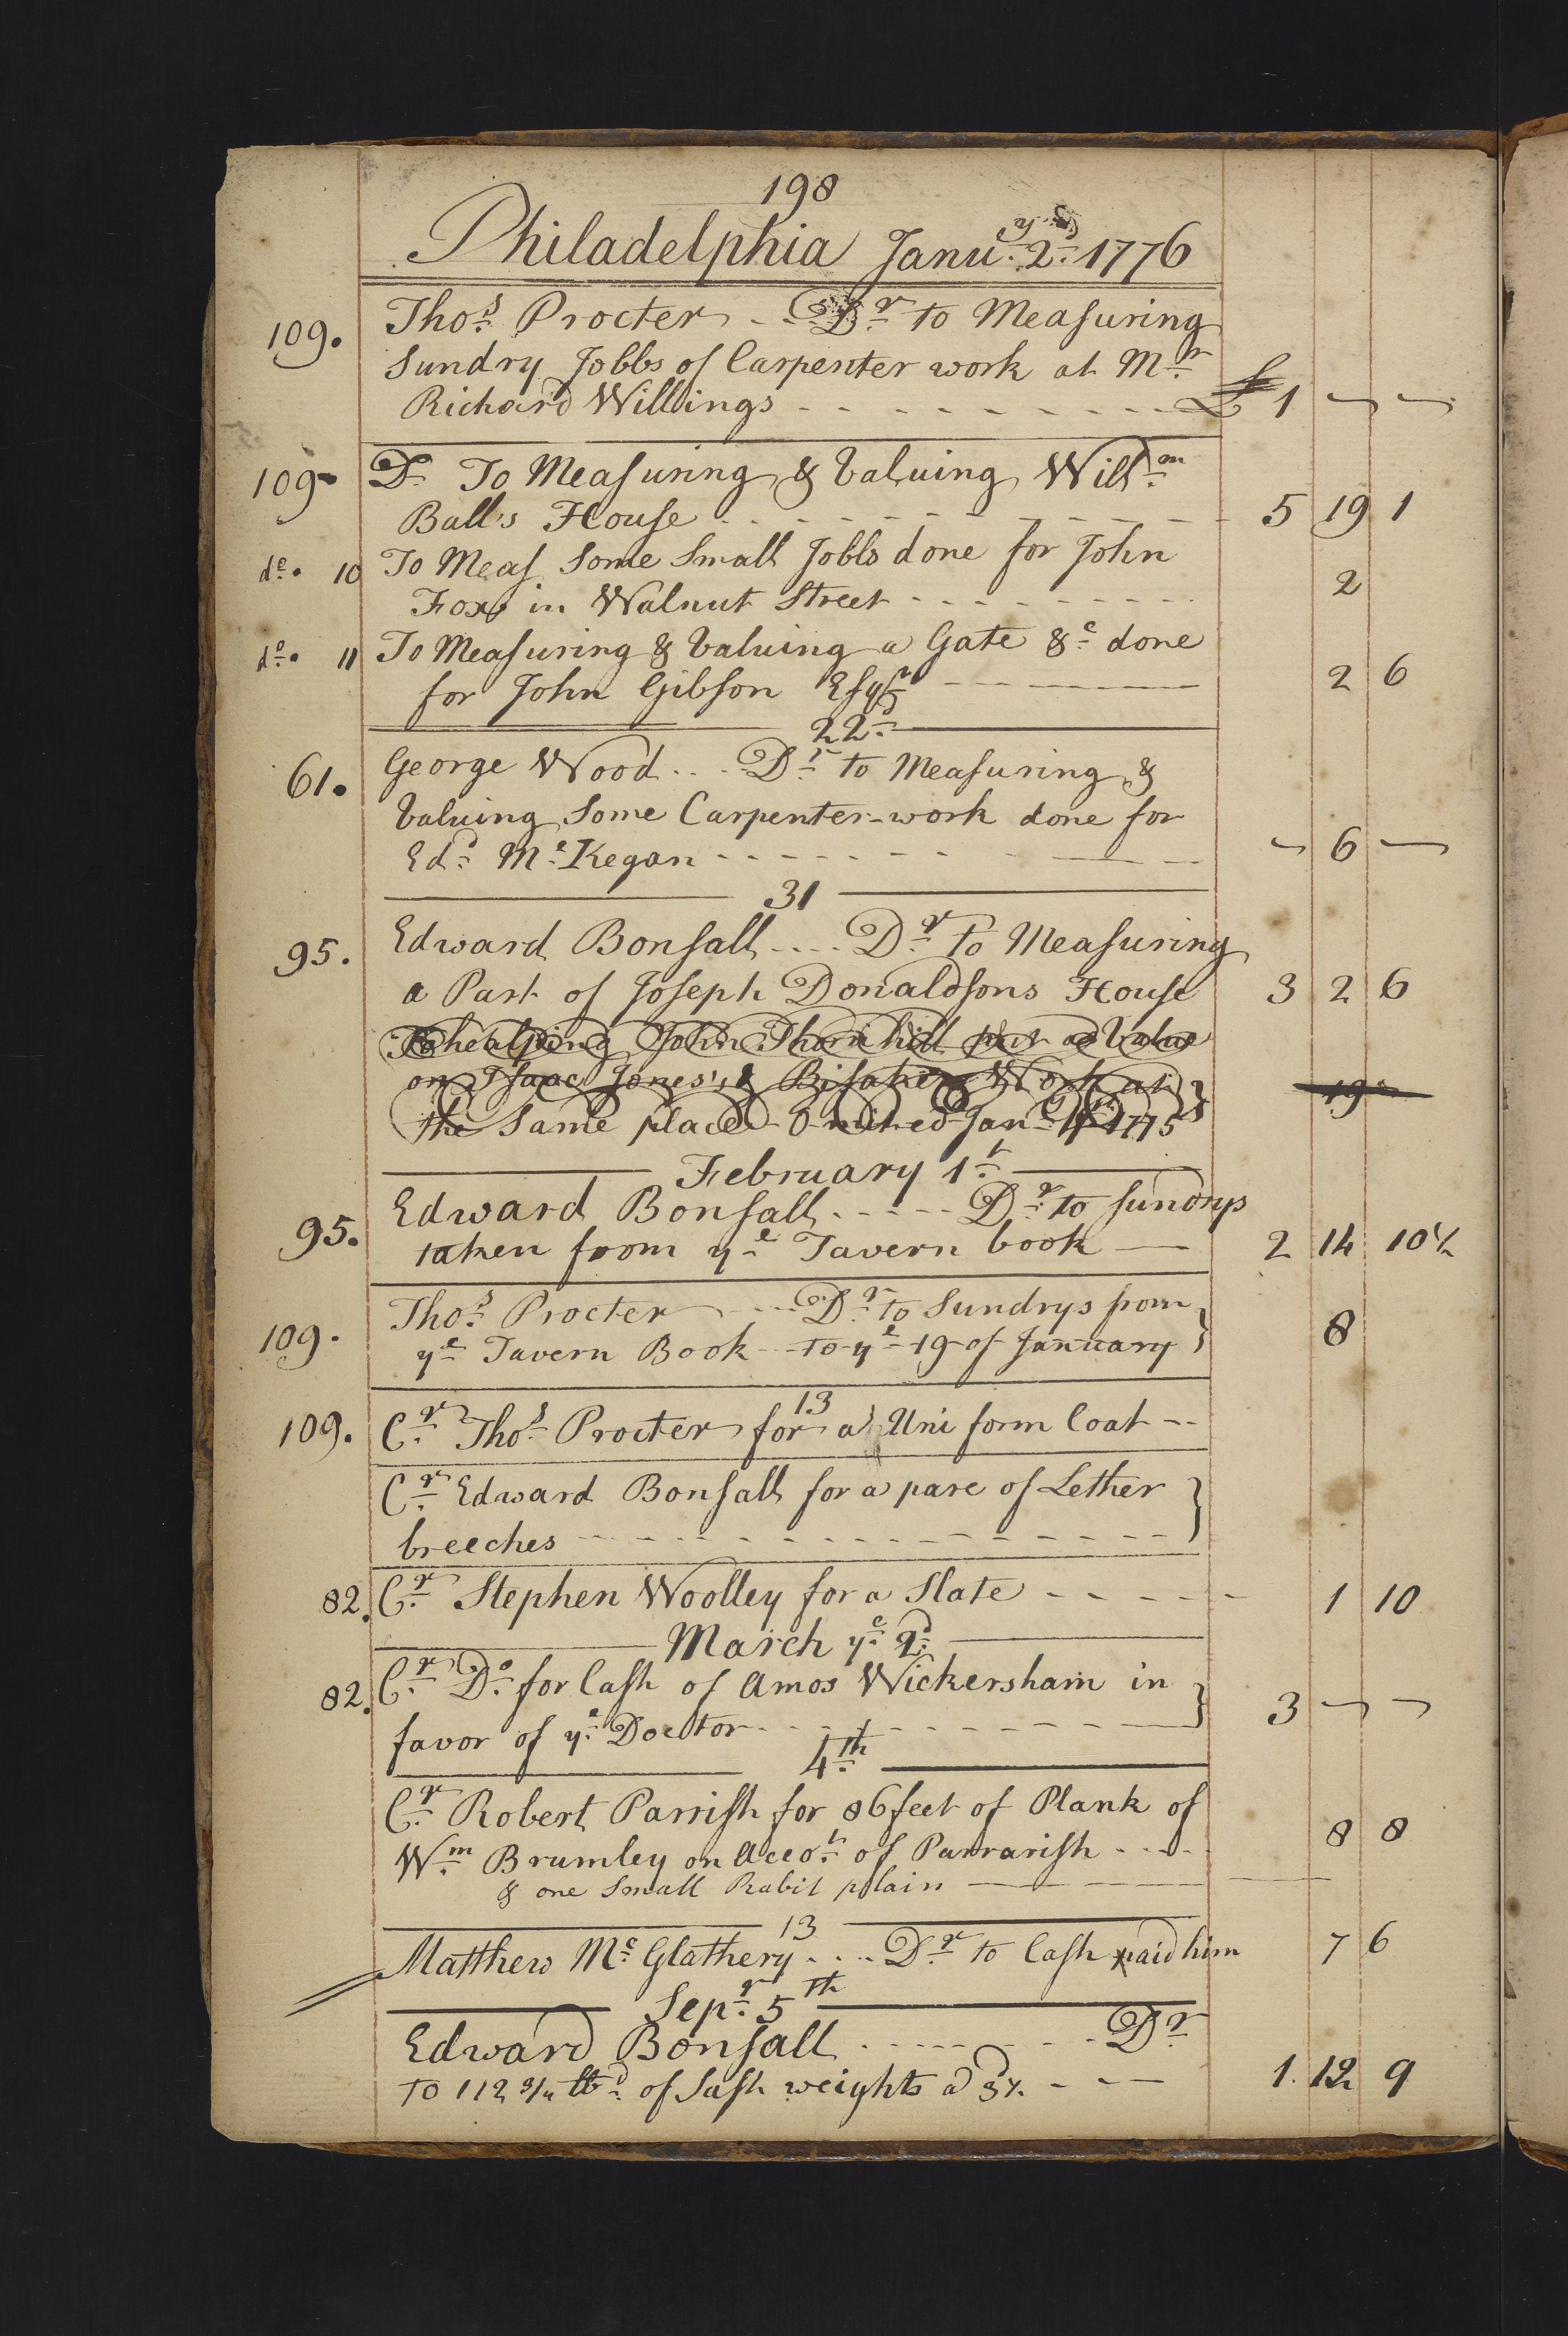 198
Philadelphia Janu.y 2.d 1776
109. Thos. Procter - - Dr. to Measuring
Sundry Jobbs of Carpenter work at Mr.
Richard Willings - - - - - - - - - - £ 1 — —
109 Do. To Measuring & Valuing Willm.
Ball's House - - - - - - - - - - 5 19 1
do. 10 To Meas. Some Small Jobbs done for John
Fox in Walnut Street - - - - - - - - 2
do. 11 To Measuring & Valuing a Gate &c. done
for John Gibson Esqr. - - - - 2 6
22.d
61. George Wood . . . Dr. to Measuring &
Valuing Some Carpenter-work done for
Ed.d Mc.Kegan - - - - - - - - - — 6 —
31
95. Edward Bonsall .... Dr. to Measuring
a Part of Joseph Donaldsons House 3 2 6
To healping John Thornhill put a Value
on Isaac Jones's & Work at
the Same place Omited Jan. 1775 19
February 1t.
95. Edward Bonsall. - - - - Dr. to Sundrys
taken from ye. Tavern book — 2 14 10½
109. Thos. Procter - - - Dr. to Sundrys from
ye. Tavern Book - - to ye. 19 of January 8
13
109. Cr. Thos. Procter for a Uniform Coat - -
Cr. Edward Bonsall for a pare of Lether
breeches - - - - - - - - - - - - - -
82. Cr. Stephen Woolley for a Slate - - - - - 1 10
March ye. 2d.
82. Cr. Do. for Cash of Amos Wickersham in
favor of ye. Doctor - - - - - - - - - 3 — —
4th.
Cr. Robert Parrish for 86 feet of Plank of
Wm. Brumley on Acco.t of Parrarish - - - - 8 8
& one Small Rabit plain — — — —
13
Matthew Mc.Glathery . . . . Dr. to Cash paid him 7 6
Sepr. 5th
Edward Bonsall - - - - - - - - Dr.
To 112 3/4 lbd. of Sash weights a 3½ - - — 1. 12 9